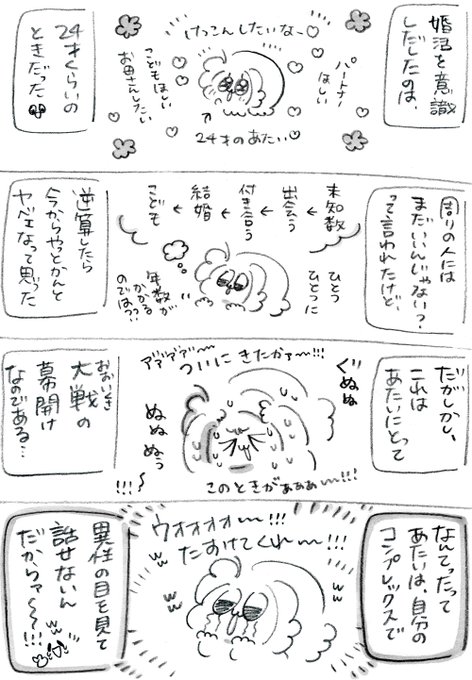 婚活を意識
しだしたのは、
けっこんしたいなー♡
パートナー
ほしい
こどもほしい
お母さんしたい
24才のあたい
24才くらいの
ときだった
周りの人には
まだいいんじゃない？
って言われたけど、
未知数
出会う
付き合う
結婚
こども
ひとつ
ひとつに
年数が
かかる
のでは??
逆算したら
今からやっとかんと
ヤベェなって思った
だがしかし、
これは
あたいにとって
ぐぬぬ
ア゛ア゛ア゛ア゛〜
ついにきたかァー!!!
ぬぬ
ぬぅ
〜!!!
このときがぁぁぁー!!!
おおいくさ
大戦の
幕開け
なのである…
なんてったって
あたいは、自分の
コンプレックスで
ウオォォォー!!!
たすけてくれー!!!
異性の目を見て
話せないん
だからァ〜〜!!!